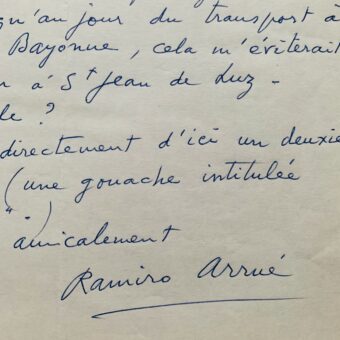 qu'au jour du transport à
Bayonne, cela m'éviterait
à St Jean de Luz -
le ?
directement d'ici un deuxiè
(une gouache intitulée
".)
amicalement
Ramiro Arrué